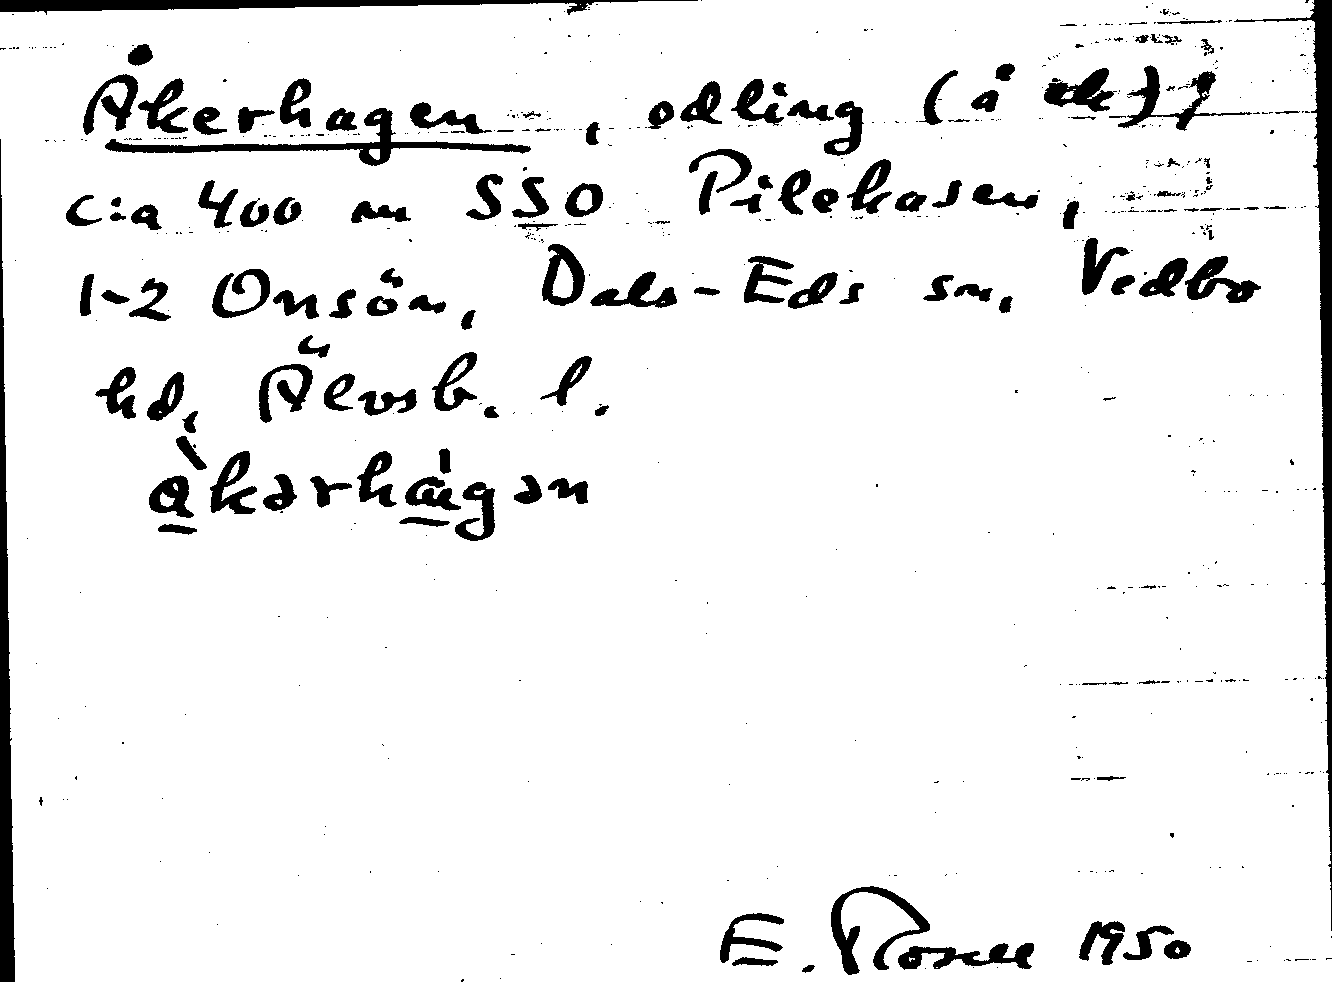 Åkerhagen, odling (å ek),
c:a 400 m SSO Pilekasen,
1-2 Onsön, Dals-Eds sn, Vedbo
hd, Älvsb. l.
àkərhágən
E. Rosell 1950